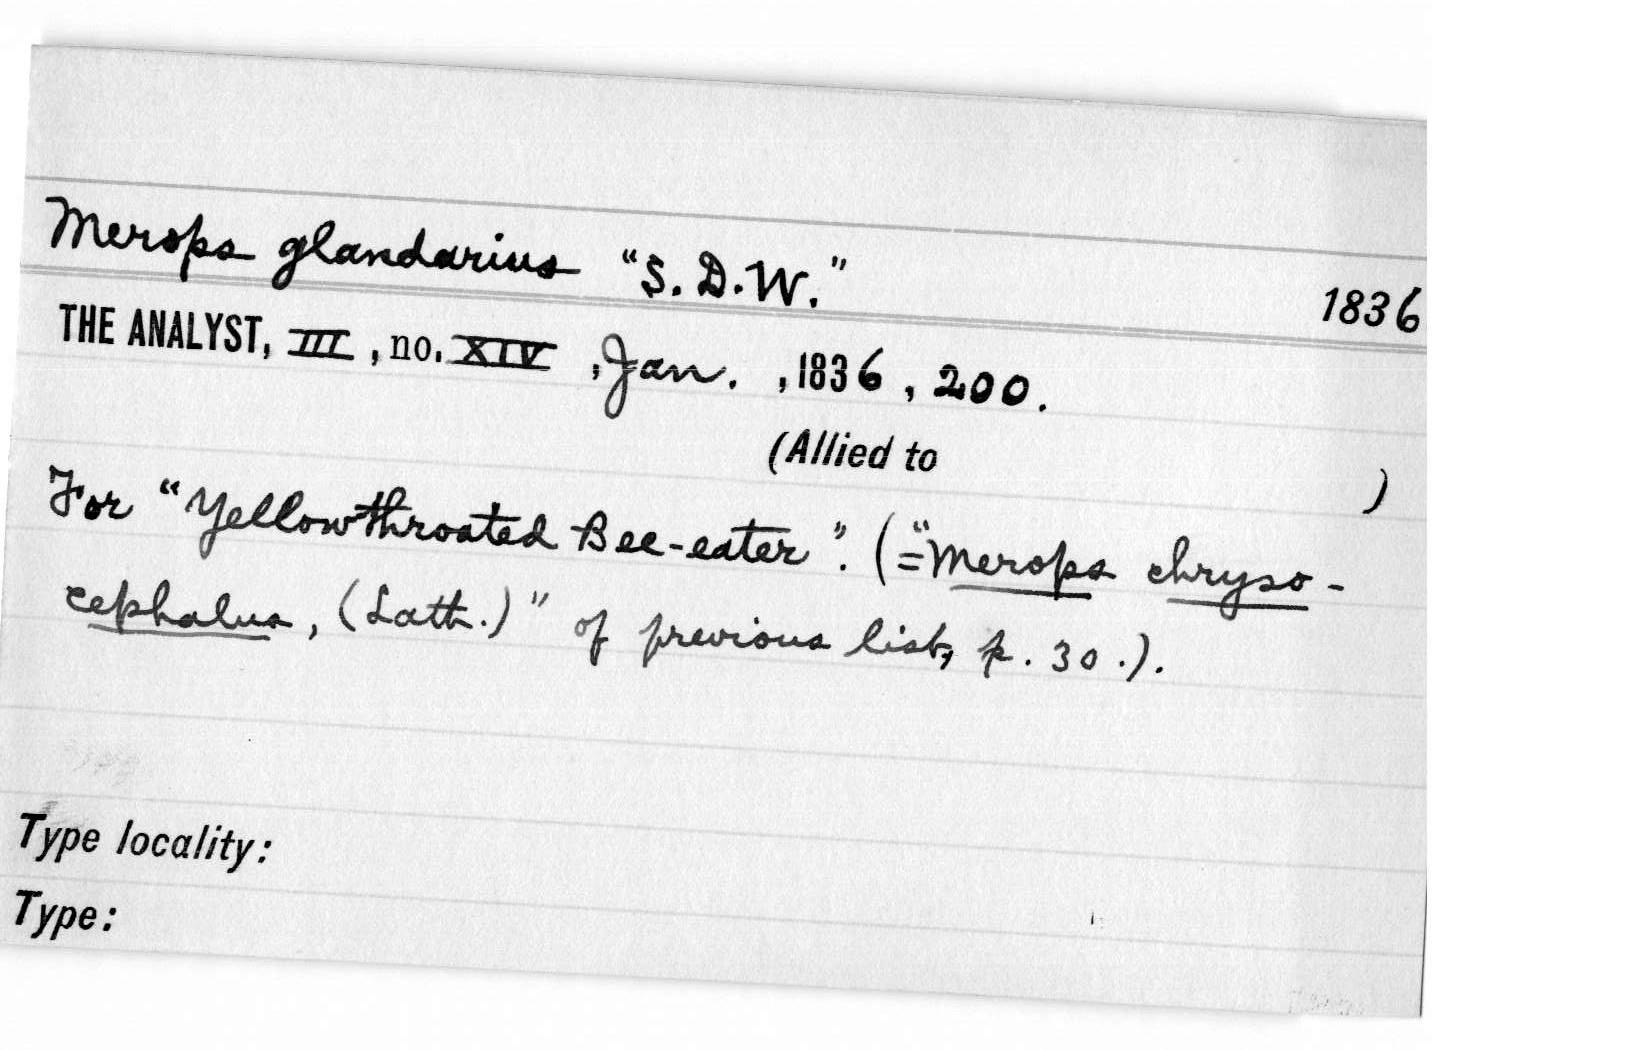 Merops glandarius "S.D.W." 1836
THE ANALYST, III, no. XIV, Jan., 1836, 200.
(Allied to )
For "Yellowthroated Bee-eater". (="Merops chryso-
cephalus, (Lath.)" of previous list, p. 30.).
Type locality:
Type: